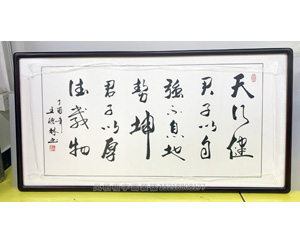 天行健
君子以自
強不息地
勢坤
君子以厚
德載物
丁酉年